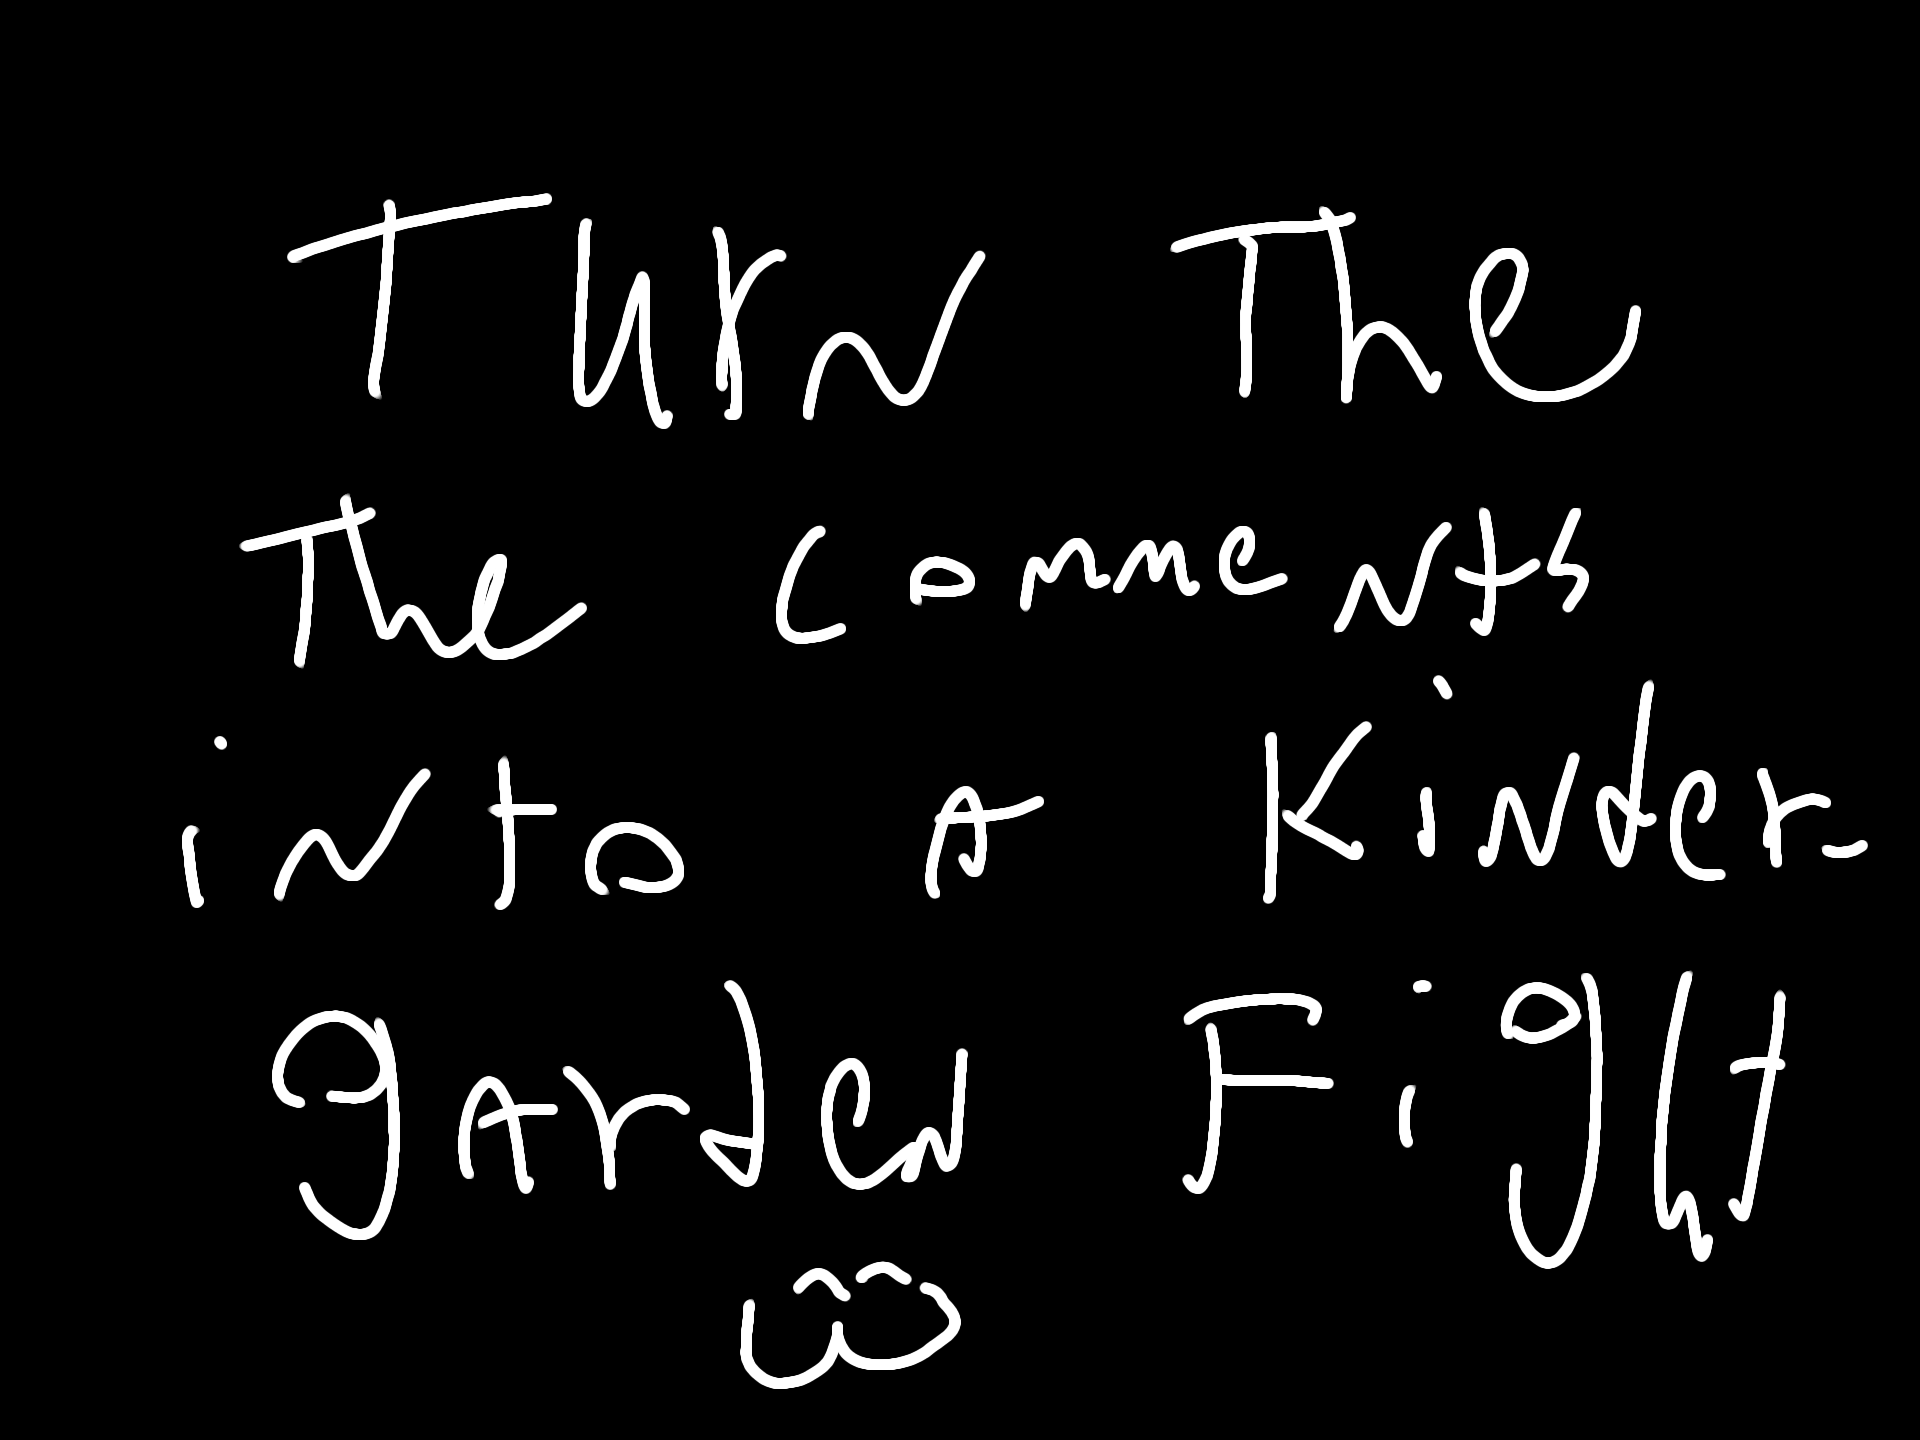 Turn The
The comments
into A Kinder-
garden Fight